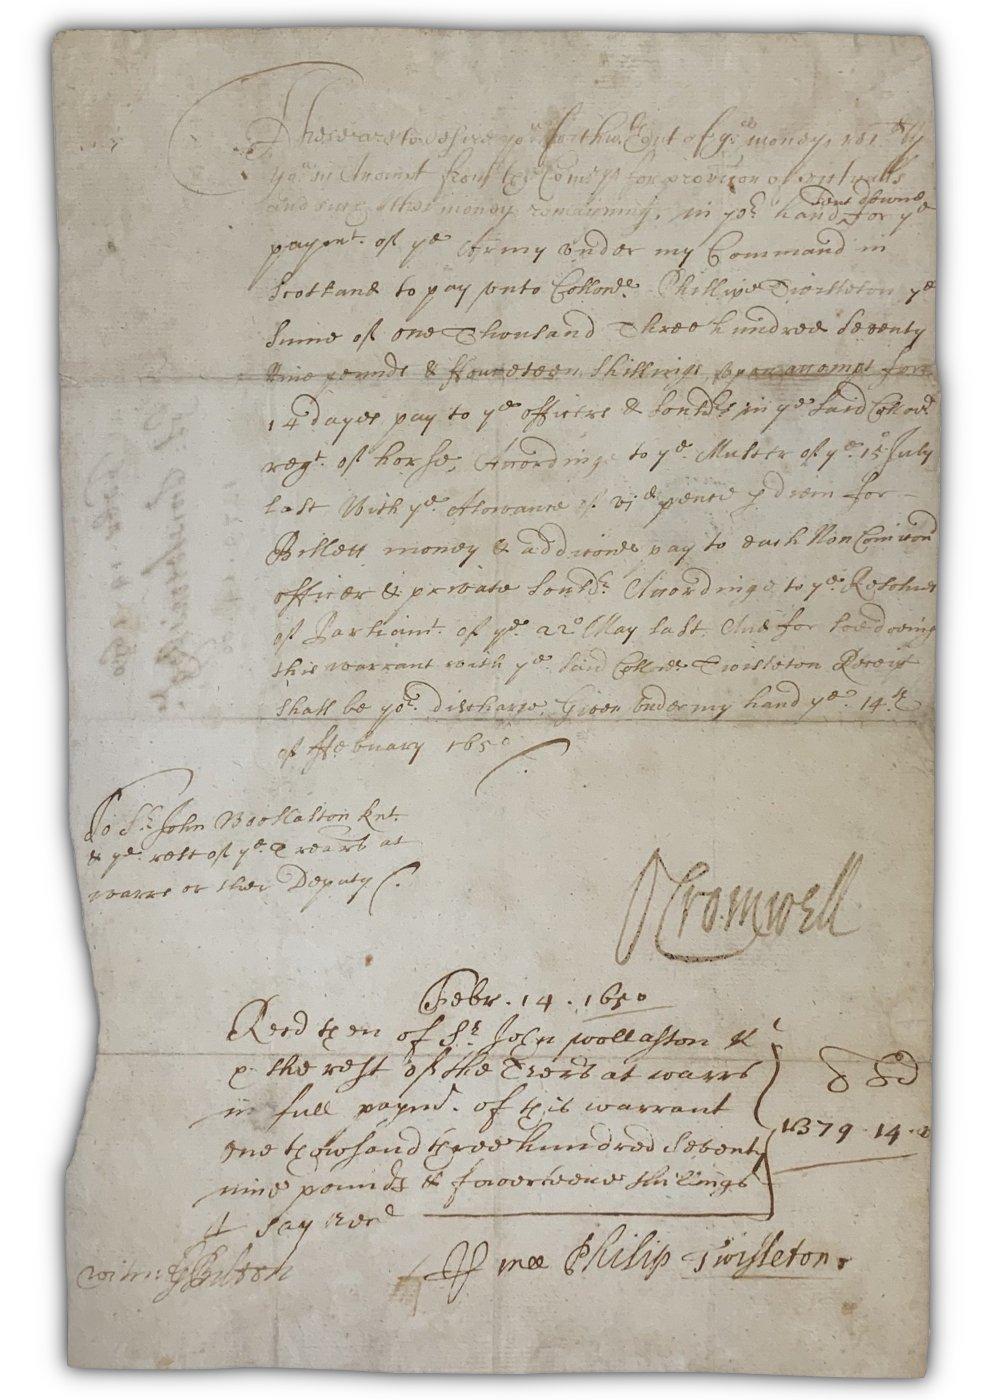 These are to desire you forthwth out of ye moneys
you in Accompt from ye Comrs for provicon of victualls
and such other moneys remaininge in yor hands sent downe for ye
paymt. of ye Army under my Command in
Scotland to pay unto Collonel. Phillipe Twisleton ye
Summe of one Thousand Three hundred Seventy
Nine pounds & ffoureteen Shillings, upon accompt for
14 dayes pay to ye officers & Souldrs in ye said Collonls
regt. of horse, Accordinge to ye. Muster of ye. 15o July
last With ye. Alowance of vjd pence p diem for
Billett money & addiconal pay to each Non Comicond
officer & private Souldr. Accordinge to ye. Resolves
of Parliamt. of ye. 22o May last. And for soe doeing
this warrant with ye. said Collonls Twisleton Receipt
shall be yor. discharge. Given under my hand ye. 14.th
of ffebuary 1650
To Sr. John Woollaston Knt.
& ye. rest of ye. Treãrs at
warrs or their Deputy
O Cromwell
Febr. 14. 1650
Recd then of Sr John wollaston &
the rest of the Trers at warrs
in full paymt. of this warrant
one thowsand three hundred Seventy
nine pounds & fowerteene shilings
I say Recd
1379. 14. 0
mee Philip Twisleton.